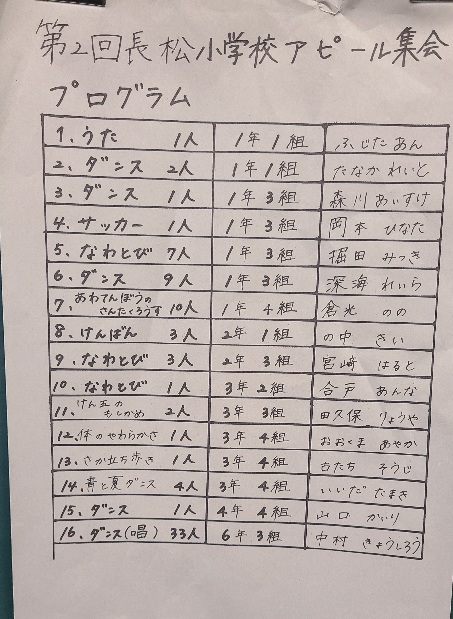 第2回長松小学校アピール集会
プログラム
1. うた 1人 1年1組 ふじたあん
2. ダンス 2人 1年1組 たなかれいと
3. ダンス 1人 1年3組 森川あいすけ
4. サッカー 1人 1年3組 岡本ひなた
5. なわとび 7人 1年3組 堀田みつき
6. ダンス 9人 1年3組 深海れいら
7. あわてんぼうの
さんたくろうす 10人 1年4組 倉光のの
8. けんばん 3人 2年1組 の中さい
9. なわとび 3人 2年3組 宮崎はると
10. なわとび 1人 3年2組 合戸あんな
11. けん玉の
もしかめ 2人 3年3組 田久保りょうや
12. 体のやわらかさ 1人 3年4組 おおくまあやか
13. さか立ち歩き 1人 3年4組 たちそうじ
14. 青と夏ダンス 4人 3年4組 いいだたまき
15. ダンス 1人 4年4組 山口かいり
16. ダンス(唱) 33人 6年3組 中村きょうしろう